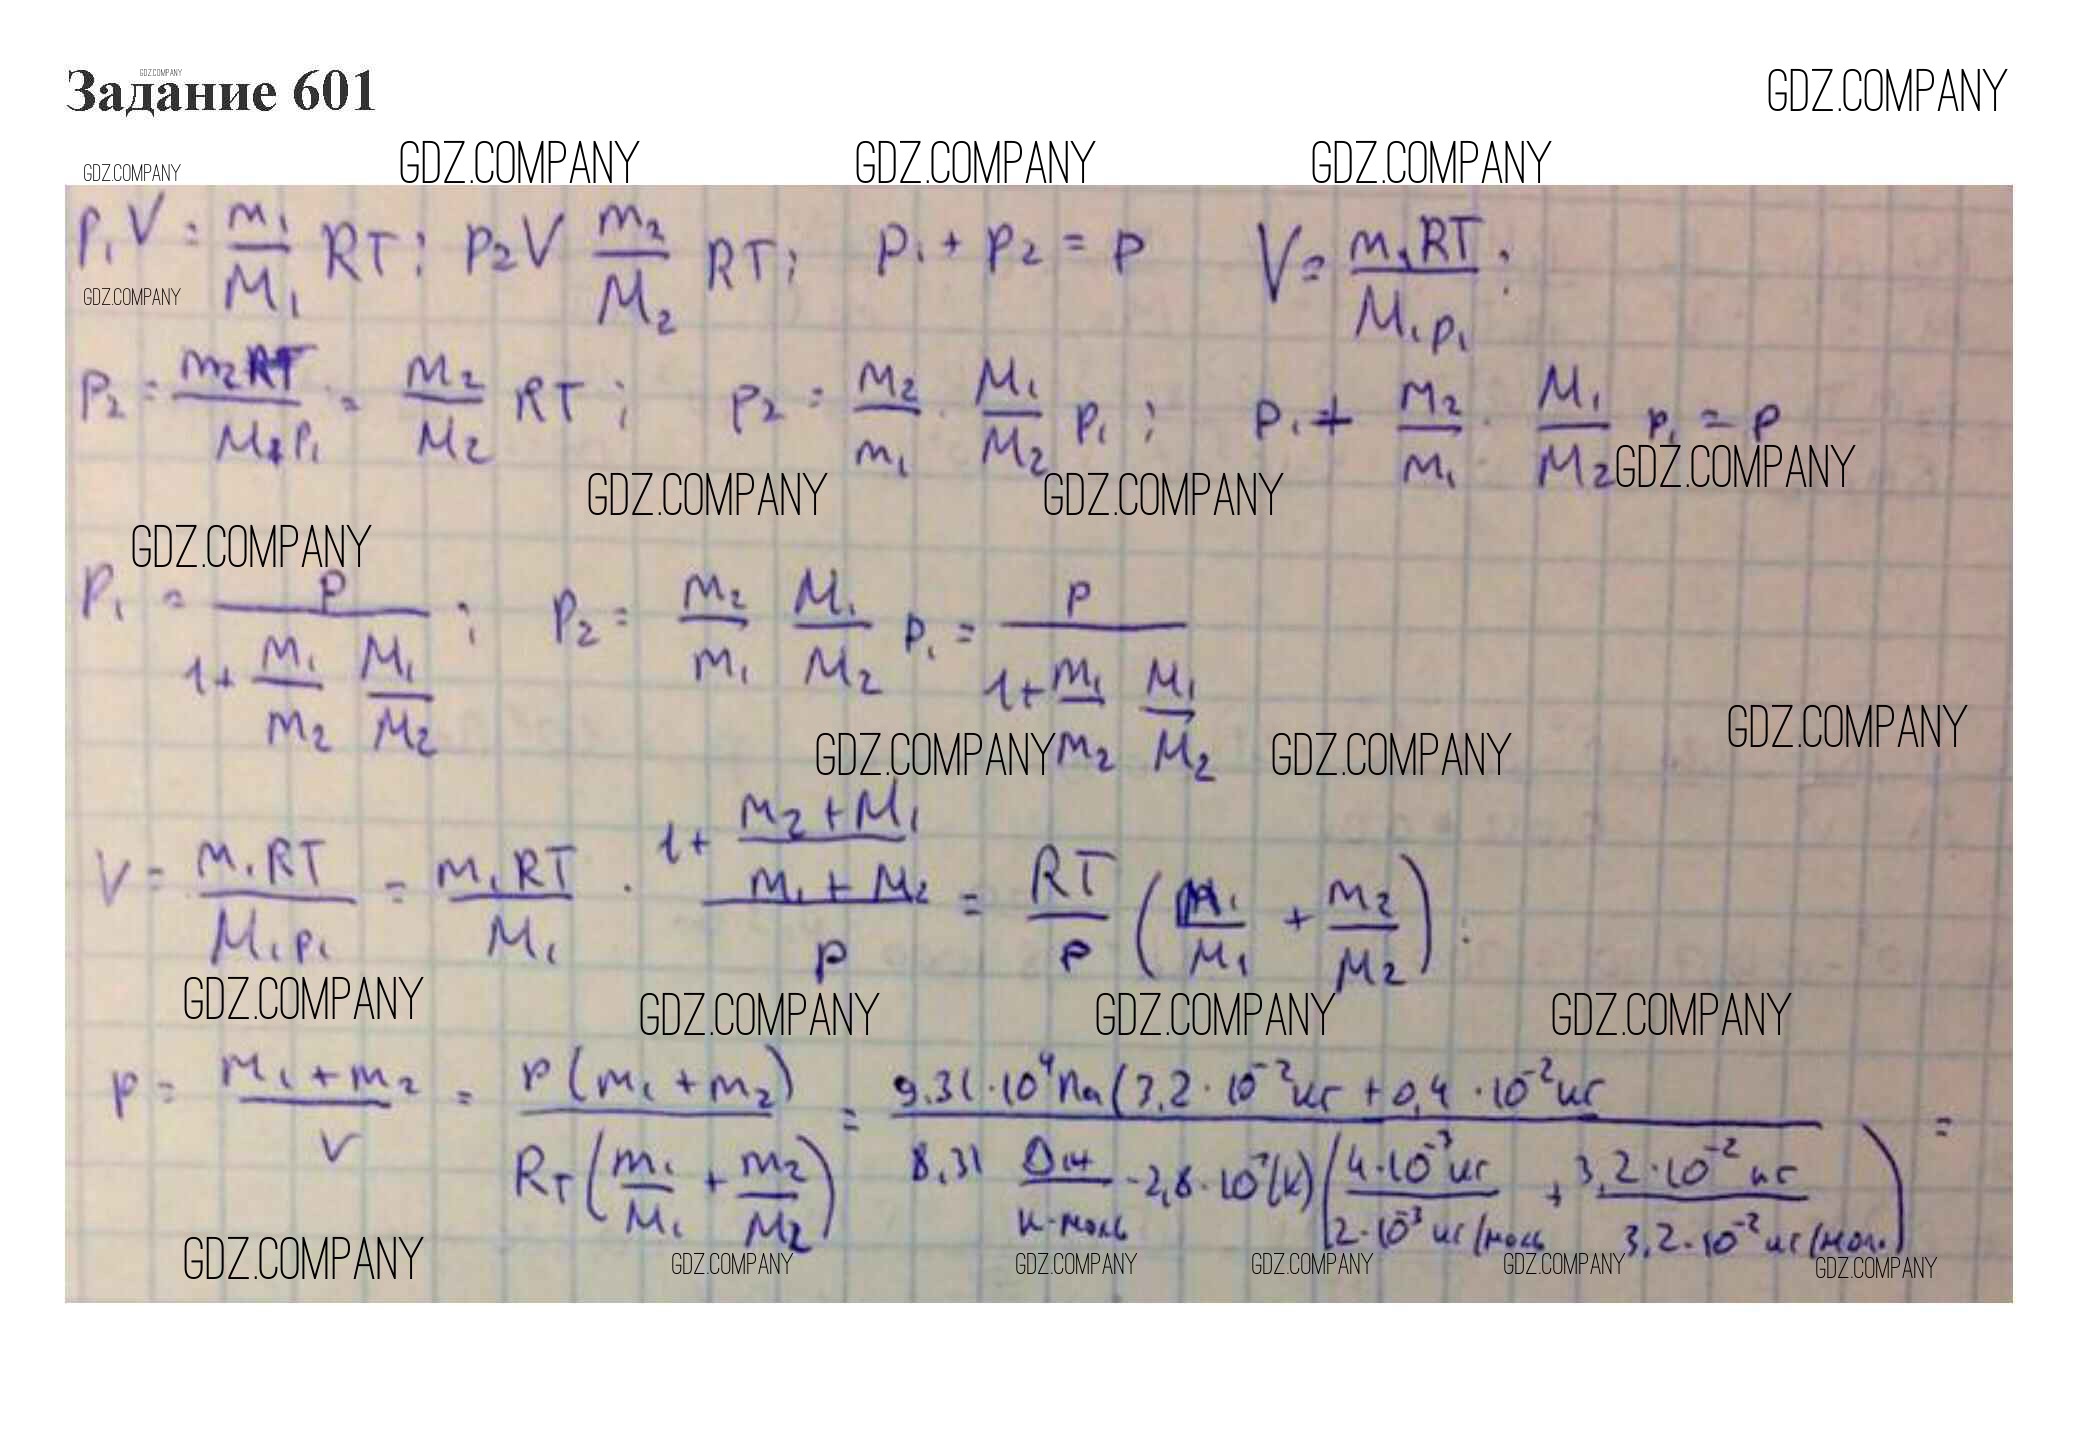 GDZ.COMPANY
Задание 601 GDZ.COMPANY
GDZ.COMPANY GDZ.COMPANY GDZ.COMPANY GDZ.COMPANY
p₁V = m₁/M₁ RT; p₂V m₂/M₂ RT; p₁ + p₂ = p V = m₁RT/M₁p₁;
GDZ.COMPANY
p₂ = m₂RT/M₂p₁ = m₂/M₂ RT; p₂ = m₂/m₁ · M₁/M₂ p₁; p₁ + m₂/m₁ · M₁/M₂ p₁ = p
GDZ.COMPANY GDZ.COMPANY GDZ.COMPANY
GDZ.COMPANY
p₁ = p/(1 + m₁/m₂ M₁/M₂); p₂ = m₂/m₁ M₁/M₂ p₁ = p/(1 + m₁/m₂ M₁/M₂)
GDZ.COMPANY GDZ.COMPANY GDZ.COMPANY
V = m₁RT/M₁p₁ = m₁RT/M₁ · (1 + (m₂ + M₁)/(m₁ + M₂))/p = RT/p (m₁/M₁ + m₂/M₂);
GDZ.COMPANY GDZ.COMPANY GDZ.COMPANY GDZ.COMPANY
p = (m₁ + m₂)/V = p(m₁ + m₂)/RT(m₁/M₁ + m₂/M₂) = 9,31·10⁴Па(3,2·10⁻²кг + 0,4·10⁻²кг / 8,31 Дж/К·моль · 2,8·10²(К)(4·10⁻³кг/2·10⁻³кг/моль + 3,2·10⁻²кг/3,2·10⁻²кг/мол.) =
GDZ.COMPANY GDZ.COMPANY GDZ.COMPANY GDZ.COMPANY GDZ.COMPANY GDZ.COMPANY